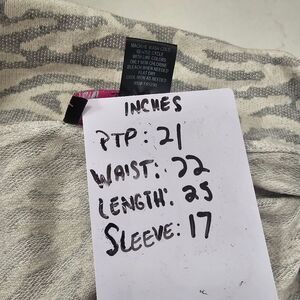 MACHINE WASH COLD
GENTLE CYCLE
WITH LIKE COLORS
ONLY NON CHLORINE
BLEACH WHEN NEEDED
FLAT DRY
COOL IRON AS NEEDED
INCHES
PTP: 21
WAIST: 22
LENGTH: 25
SLEEVE: 17